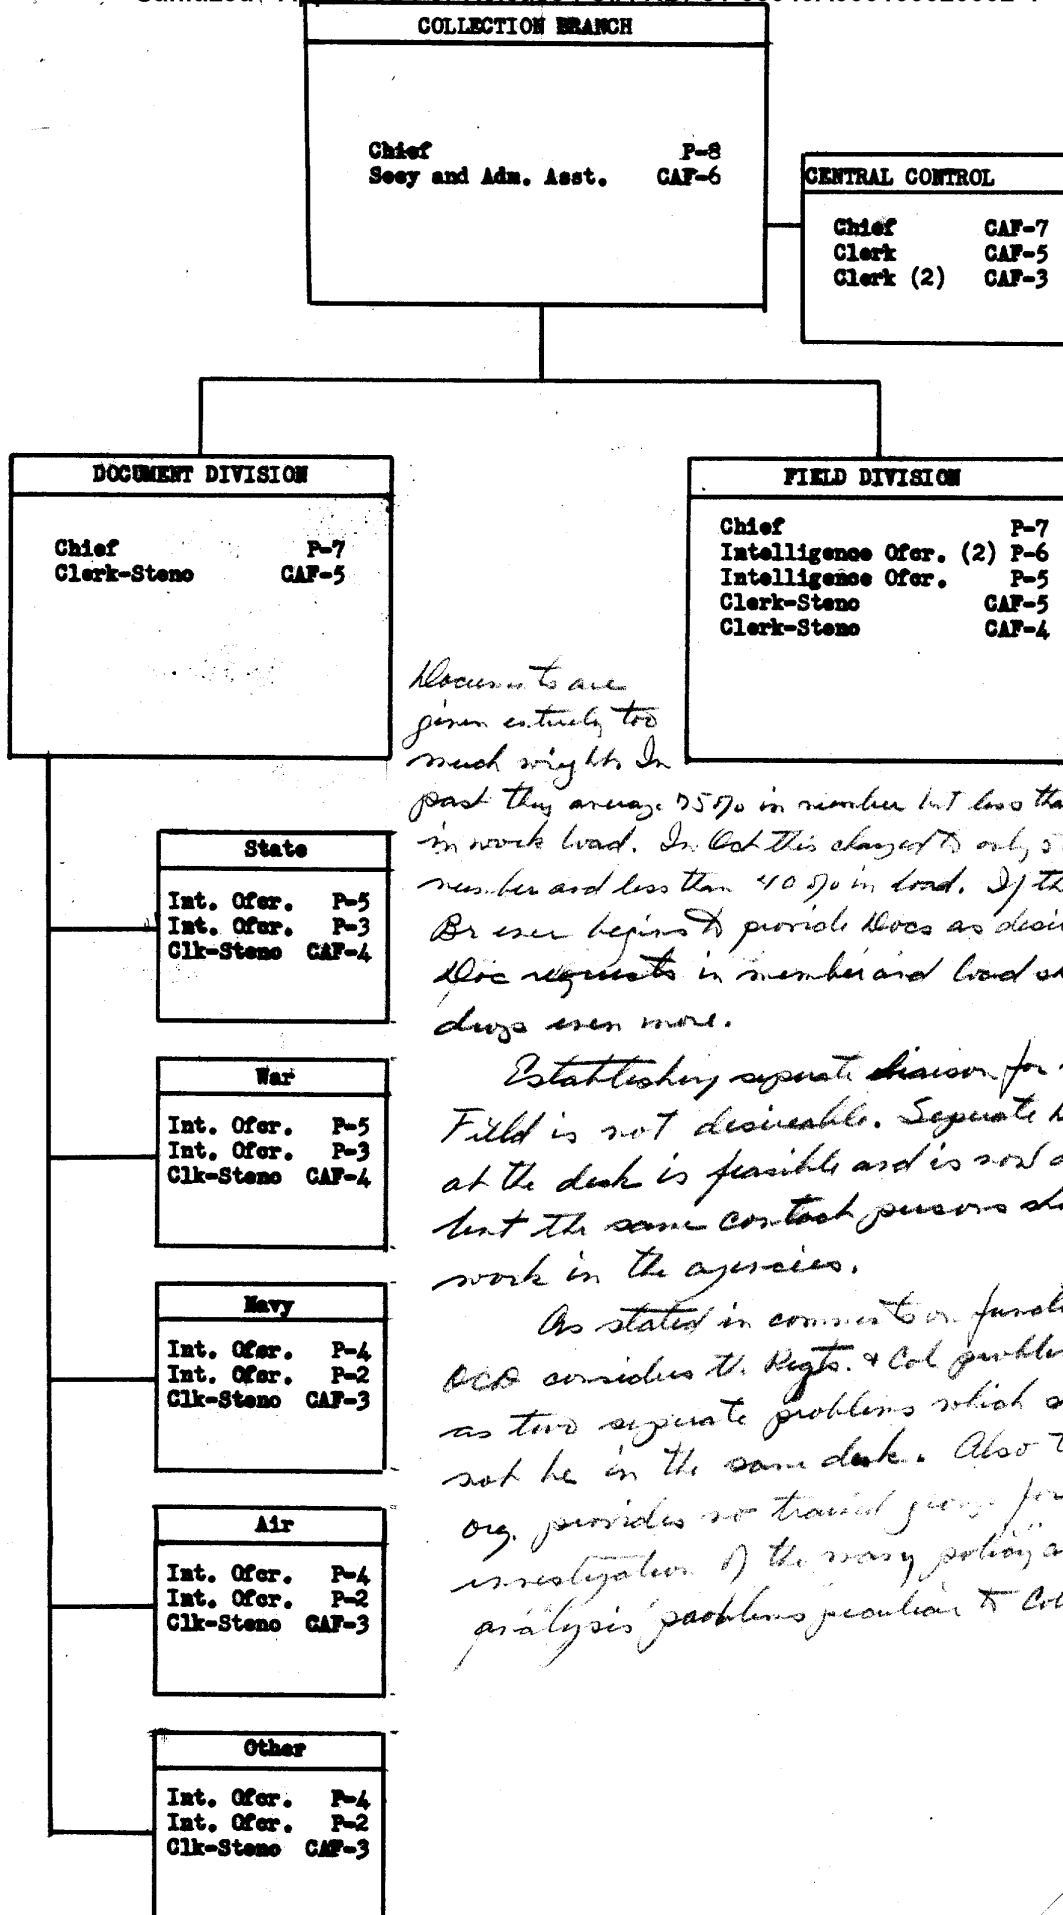 COLLECTION BRANCH
Chief P-8
Secy and Adm. Asst. CAF-6
CENTRAL CONTROL
Chief CAF-7
Clerk CAF-5
Clerk (2) CAF-3
DOCUMENT DIVISION
Chief P-7
Clerk-Steno CAF-5
FIELD DIVISION
Chief P-7
Intelligence Ofcr. (2) P-6
Intelligence Ofcr. P-5
Clerk-Steno CAF-5
Clerk-Steno CAF-4
State
Int. Ofcr. P-5
Int. Ofcr. P-3
Clk-Steno CAF-4
War
Int. Ofcr. P-5
Int. Ofcr. P-3
Clk-Steno CAF-4
Navy
Int. Ofcr. P-4
Int. Ofcr. P-2
Clk-Steno CAF-3
Air
Int. Ofcr. P-4
Int. Ofcr. P-2
Clk-Steno CAF-3
Other
Int. Ofcr. P-4
Int. Ofcr. P-2
Clk-Steno CAF-3
Documents are
given entirely too
much weight. In
past they average 75% in number but less tha
in work load. In Oct this changed to only 5
number and less than 40% in load. If th
Br ever begins to provide Docs as desir
Doc requests in number and load
drops even more.
Establishing separate liaison for
Field is not desireable. Separate
at the desk is feasible and is now
but the same contact persons sh
work in the agencies.
As stated in comments on functi
OCD considers the Reqts. & Col proble
as two separate problems which
not be in the same desk. Also t
org. provides no trained group for
investigation of the many policy a
analysis problems peculiar to Col